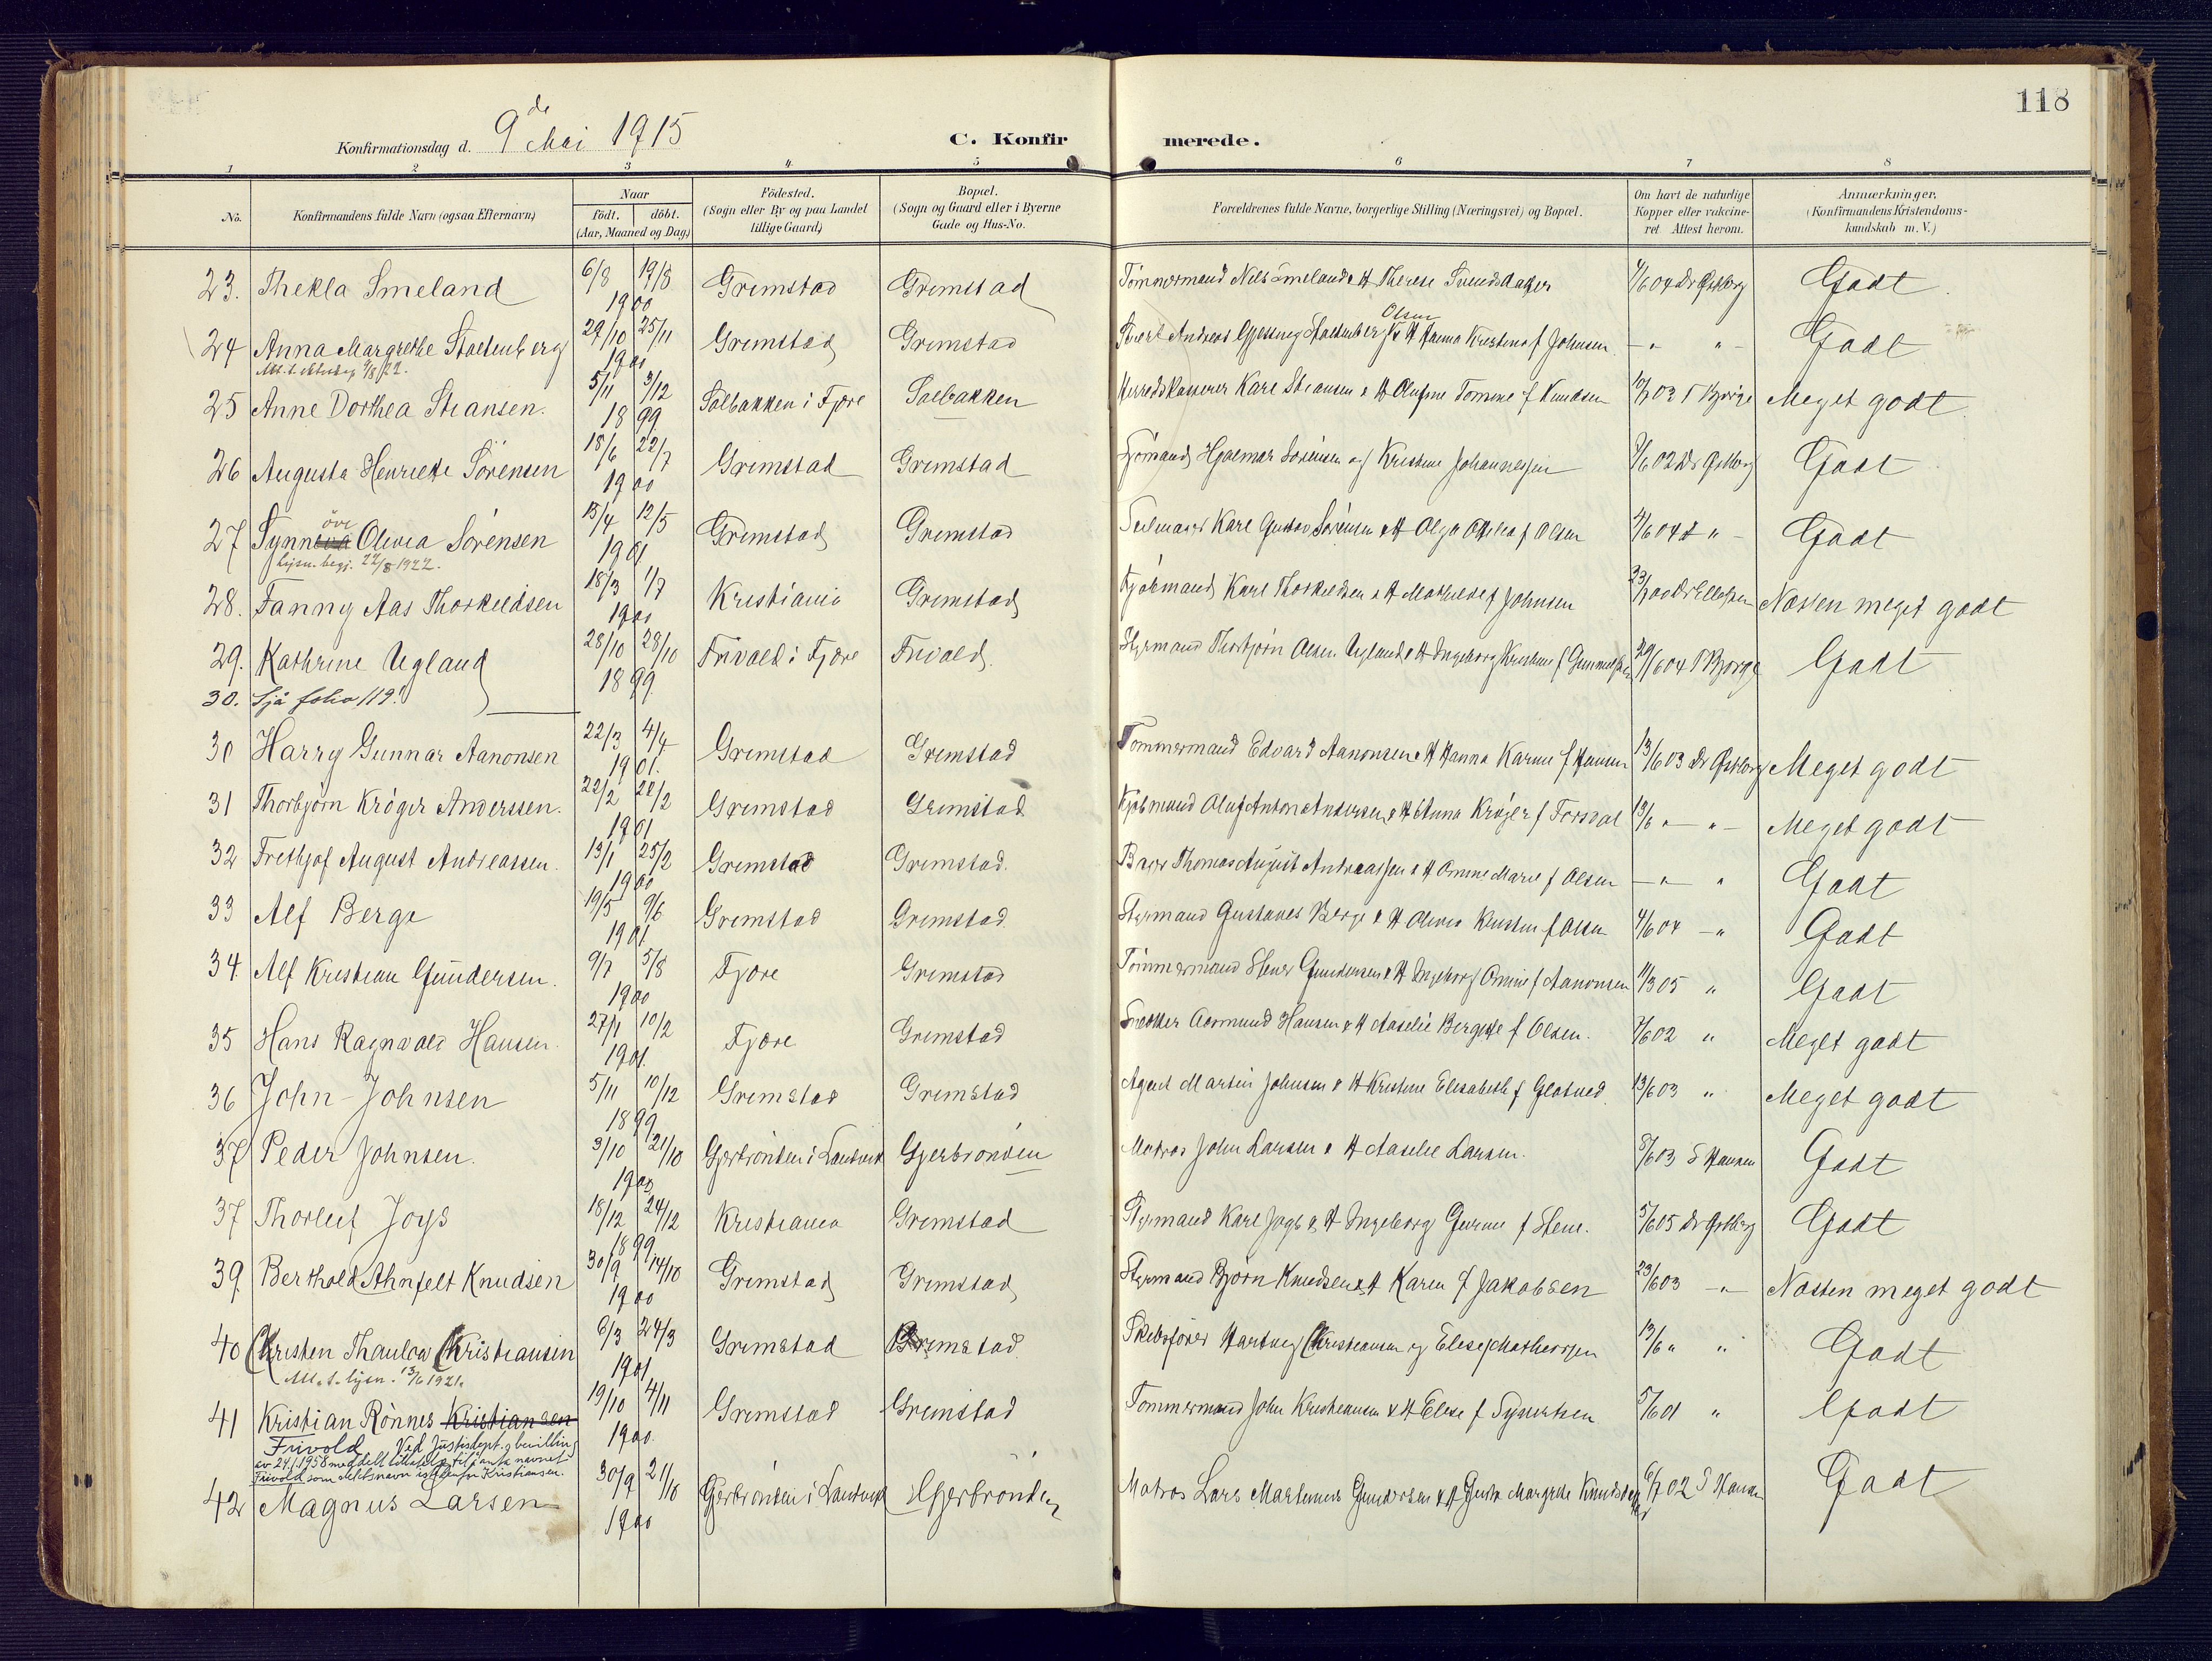 118
Konfirmationsdag d. 9de Mai 1915 C. Konfirmerede.
1 2 3 4 5 6 7 8
No. Konfirmandens fulde Navn (ogsaa Efternavn) Naar födt. döbt. (Aar, Maaned og Dag) Födested. (Sogn eller By og paa Landet tillige Gaard) Bopæl. (Sogn og Gaard eller i Byerne Gade og Hus-No. Forældrenes fulde Navne, borgerlige Stilling (Næringsvei) og Bopæl. Om havt de naturlige Kopper eller vakcineret Attest herom. Anmærkninger. (Konfirmandens Kristendomskundskab m. V.)
23. Thekla Smeland 6/8 19/8 1900 Grimstad Grimstad Tömmermand Nils Smeland & H Therese 7/6 04 Dr Østberg Godt
24 Anna Margrethe Stoltenberg 29/10 25/11 1900 Grimstad Grimstad Andreas Gjessing Stoltenberg Olsen & H Hanna Kristine f Johnsen – " " – Godt
25 Anne Dorthea Stiansen. 5/11 3/12 1899 Solbakken i Fjære Solbakken Herredskasserer Karl Stiansen & H Olufine Tomine f Knudsen Meget godt
26 Augusta Henriette Sörensen 18/6 22/7 1900 Grimstad Grimstad Sjömand Hjalmar Sörensen og Kristine Johannessen 7/6 02 Dr Østberg Godt
27 Synnöve Olivia Sörensen 15/4 12/5 1901 Grimstad Grimstad Seilmager Karl Gustav Sörensen & H Olga Otilia f Olsen 4/6 04 " – Godt
Lysn. begj. 22/8 1922.
28. Fanny Aas Thorkildsen 18/3 1/7 1900 Kristiania Grimstad Kjöbmand Karl Thorkildsen & H Mathilde f Johnsen Næsten meget godt
29. Kathrine Ugland 28/10 28/10 1899 Frivold i Fjære Frivold. Styrmand Thorbjörn Olsen Ugland & H Ingeborg Kristine f Gunnulfsen Godt
30. Sjå folio 119!
30 Harry Gunnar Aanonsen 22/3 4/4 1901. Grimstad Grimstad Tömmermand Edvard Aanonsen & H Hanna Karine f Hansen 13/6 03 Dr Østberg Meget godt
31 Thorbjörn Kröger Anderssen. 22/2 22/2 1901 Grimstad Grimstad Kjöbmand Oluf Anton Anderssen & H Anna Kröger f Forsdal 13/6 " – " – Meget godt
32 Frethjof August Andreassen. 13/1 25/2 1900 Grimstad Grimstad. Thomas August Andreassen & H Marie f Olsen – " – " Godt
33 Alf Berge 19/5 9/6 1901. Grimstad Grimstad. Styrmand Gustaves Berge & H Olivia Kristine f Olsen 4/6 04 – " Godt
34 Alf Kristian Gundersen. 9/7 5/8 1900 Fjære Grimstad Tömmermand Gundersen & H Ingeborg f Aanonsen 11/3 05 " Godt
35 Hans Ragnvald Hansen. 27/1 10/2 1901. Fjære Grimstad Snedker Aasmund Hansen & H Aaselie Bergitte f Olsen. 7/6 02 " Meget godt
36 John Johnsen 5/11 10/12 1899 Grimstad Grimstad Agent Martin Johnsen & H Kristine Elisabeth f 13/6 03 " Meget godt
37 Peder Johnsen. 3/10 21/10 1900 Gjerbrönden i Landvik Gjerbrönden Matros John Larsen & H Aaselie Larsen. 8/6 03 S Hansen Godt
37 Thorleif Joys 18/12 24/12 1899 Kristiania Grimstad Styrmand Karl Joys & H Ingeborg f Stene. 5/6 05 Dr Østberg Godt
39. Berthold Ahnfelt Knudsen 30/9 14/10 1900 Grimstad Grimstad Styrmand Björn Knudsen & H Karen f Jakobsen 23/6 03 – " – Næsten meget godt
40 Kristen Thaulow Kristiansen 6/3 24/3 1901 Grimstad Grimstad Skibsförer Hartvig Kristiansen og Elise Mathiassen 13/6 " " Godt
Att. t. lysn. 13/6 1921.
41 Kristian Rönnes Kristiansen 19/10 4/11 1900. Grimstad Grimstad Tömmermand John Kristiansen & H Elise f Syvertsen 5/6 01 " Godt
Frivold Ved Justisdept.s bevilling
av 24/1 1958 meddelt tillatelse til å anta navnet
Frivold som slektsnavn istedenfor Kristiansen.
42 Magnus Larsen 30/9 21/10 1900 Gjerbrönden i Landvik Gjerbrönden Matros Lars Gundersen & H Margrethe Knudsdatter 6/7 02 S Hansen Godt